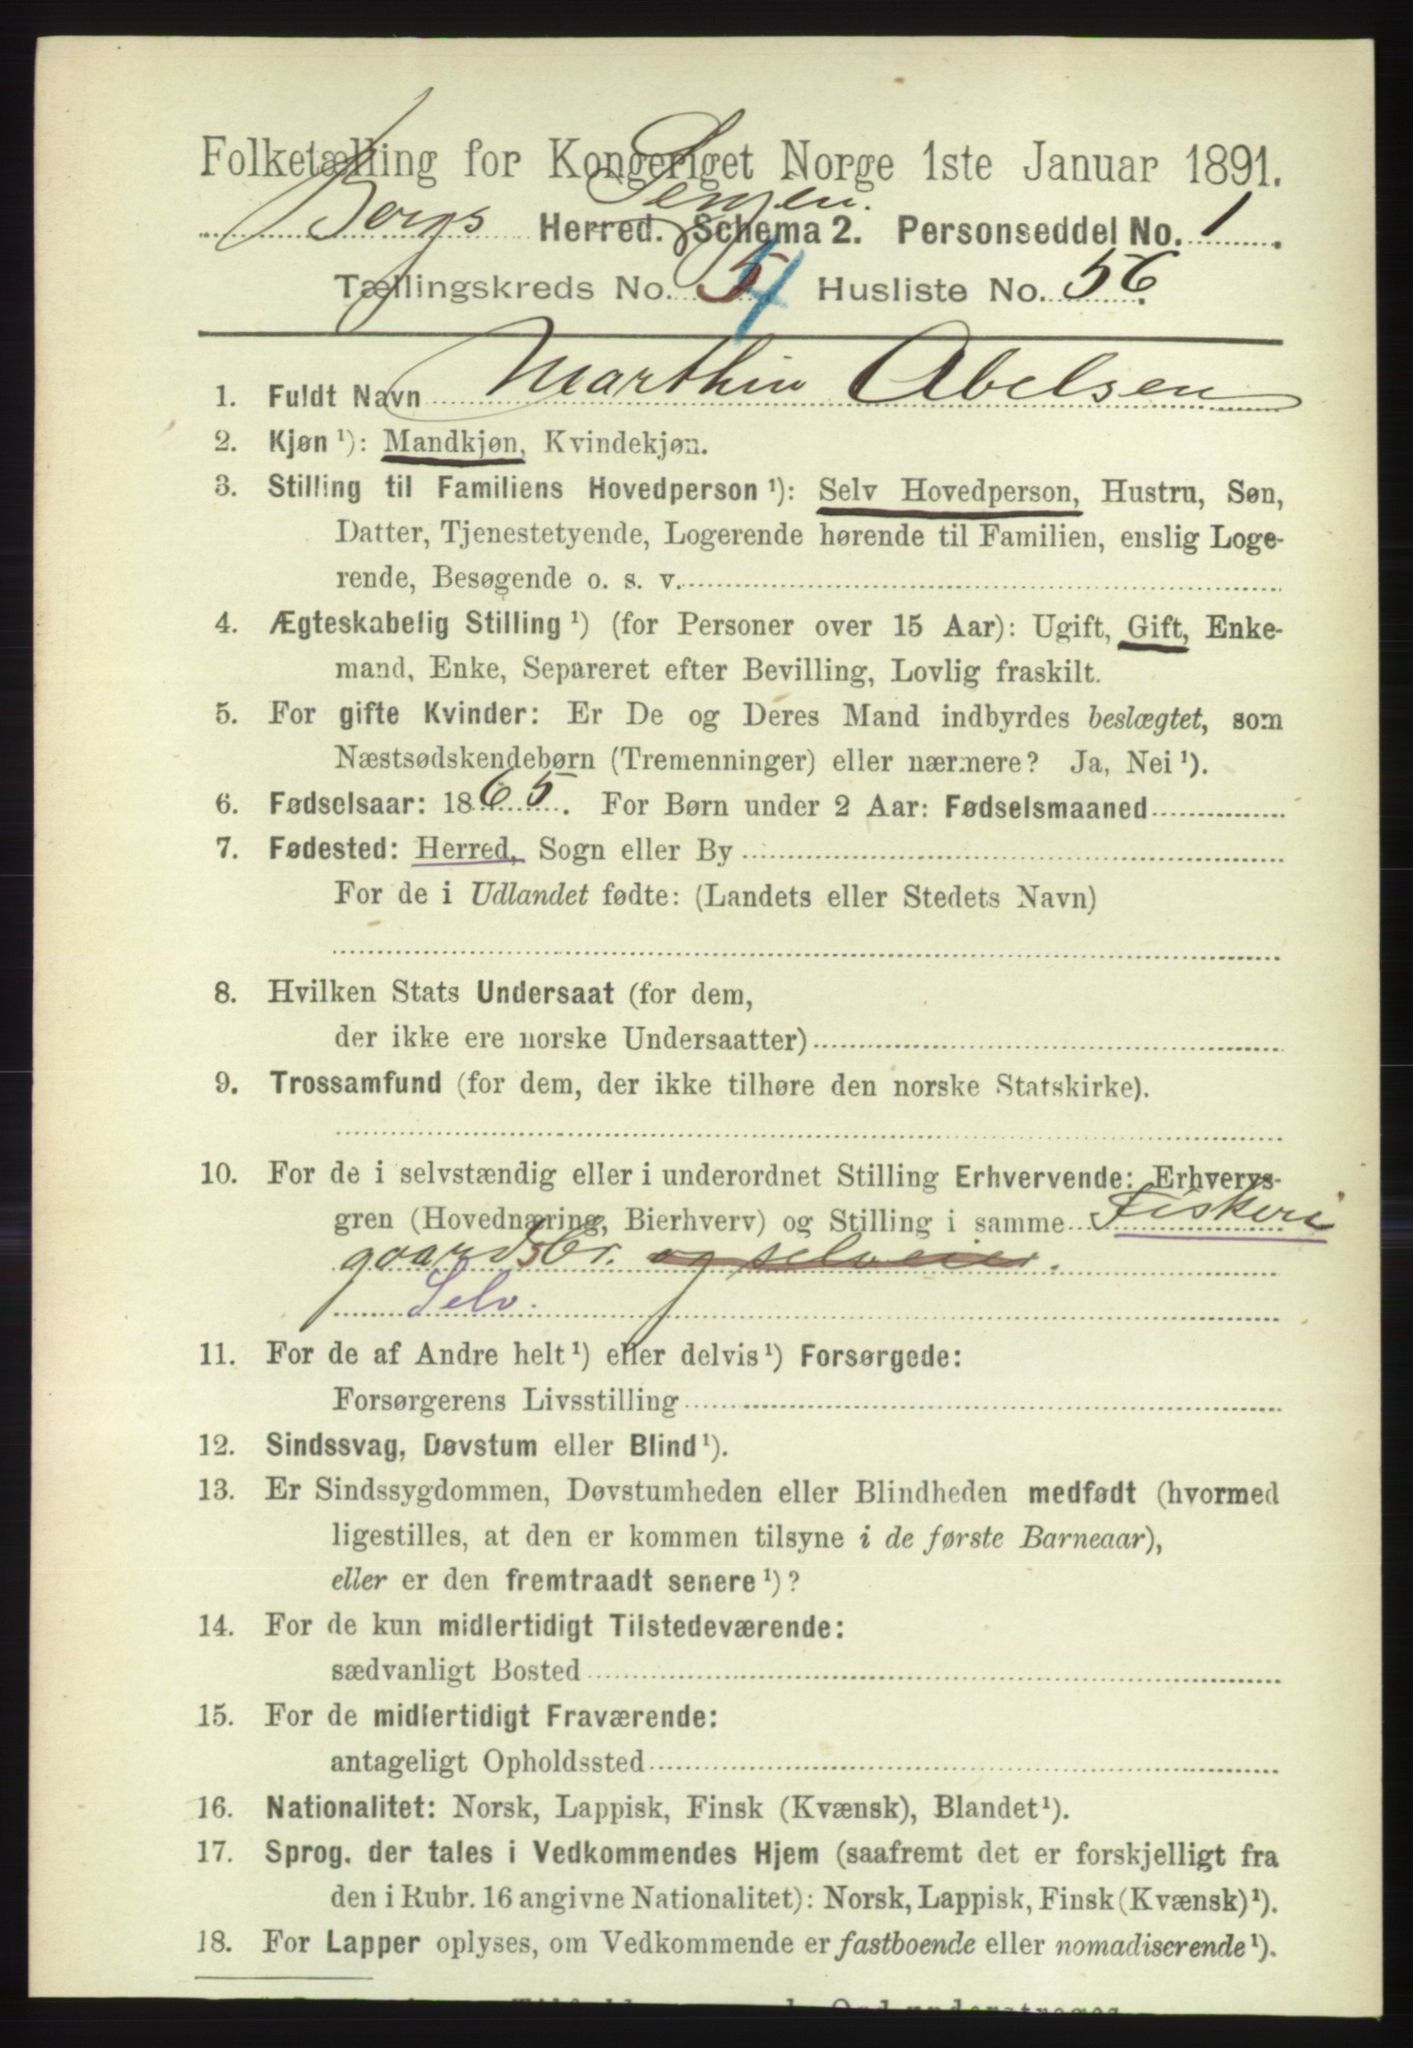 Folketælling for Kongeriget Norge 1ste Januar 1891.
Borgs Herred. Schema 2. Personseddel No. 1.
Tællingskreds No. 5 4 Husliste No. 56.
1. Fuldt Navn Marthin Abelsen
2. Kjøn ¹): Mandkjøn, Kvindekjøn.
3. Stilling til Familiens Hovedperson ¹): Selv Hovedperson, Hustru, Søn,
Datter, Tjenestetyende, Logerende hørende til Familien, enslig Loge-
rende, Besøgende o. s. v.
4. Ægteskabelig Stilling ¹) (for Personer over 15 Aar): Ugift, Gift, Enke-
mand, Enke, Separeret efter Bevilling, Lovlig fraskilt.
5. For gifte Kvinder: Er De og Deres Mand indbyrdes beslægtet, som
Næstsødskendebørn (Tremenninger) eller nærmere? Ja, Nei ¹).
6. Fødselsaar: 1865. For Børn under 2 Aar: Fødselsmaaned
7. Fødested: Herred, Sogn eller By
For de i Udlandet fødte: (Landets eller Stedets Navn)
8. Hvilken Stats Undersaat (for dem,
der ikke ere norske Undersaatter)
9. Trossamfund (for dem, der ikke tilhøre den norske Statskirke).
10. For de i selvstændig eller i underordnet Stilling Erhvervende: Erhvervs-
gren (Hovednæring, Bierhverv) og Stilling i samme Fiskeri
gaardsbr. og selveier.
Selv.
11. For de af Andre helt ¹) eller delvis ¹) Forsørgede:
Forsørgerens Livsstilling
12. Sindssvag, Døvstum eller Blind ¹).
13. Er Sindssygdommen, Døvstumheden eller Blindheden medfødt (hvormed
ligestilles, at den er kommen tilsyne i de første Barneaar),
eller er den fremtraadt senere ¹)?
14. For de kun midlertidigt Tilstedeværende:
sædvanligt Bosted
15. For de midlertidigt Fraværende:
antageligt Opholdssted
16. Nationalitet: Norsk, Lappisk, Finsk (Kvænsk), Blandet ¹).
17. Sprog, der tales i Vedkommendes Hjem (saafremt det er forskjelligt fra
den i Rubr. 16 angivne Nationalitet): Norsk, Lappisk, Finsk (Kvænsk) ¹).
18. For Lapper oplyses, om Vedkommende er fastboende eller nomadiserende ¹).